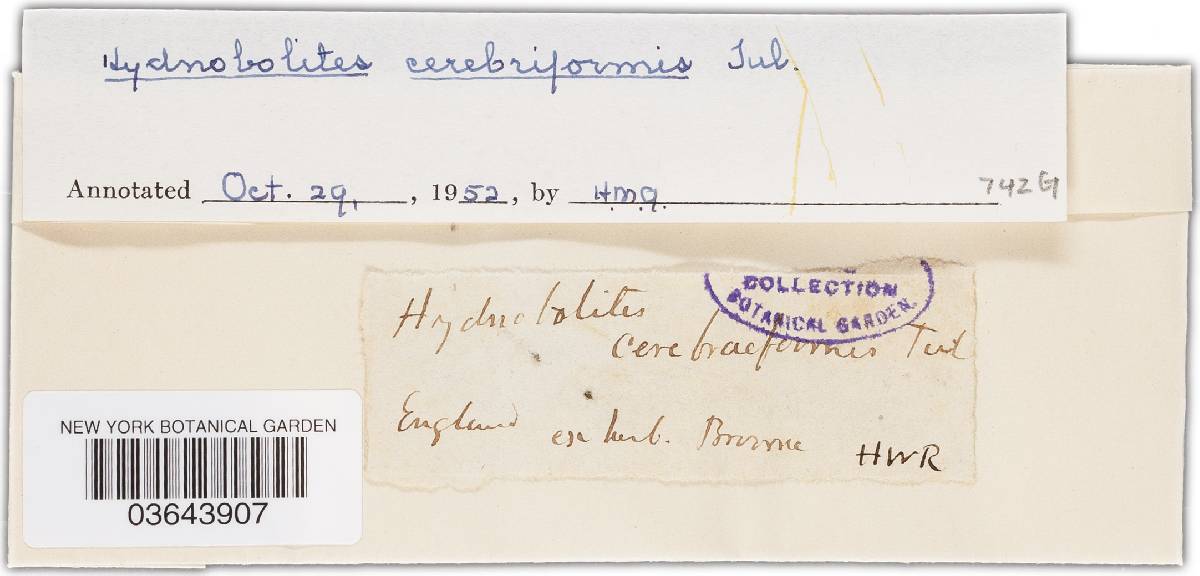 Hydnobolites cerebriformis Tul.
Annotated Oct. 29, , 1952, by H.m.g.
742G
COLLECTION
BOTANICAL GARDEN.
Hydnobolites
cerebraeformis Tul
England ex herb. Broome HWR
NEW YORK BOTANICAL GARDEN
03643907